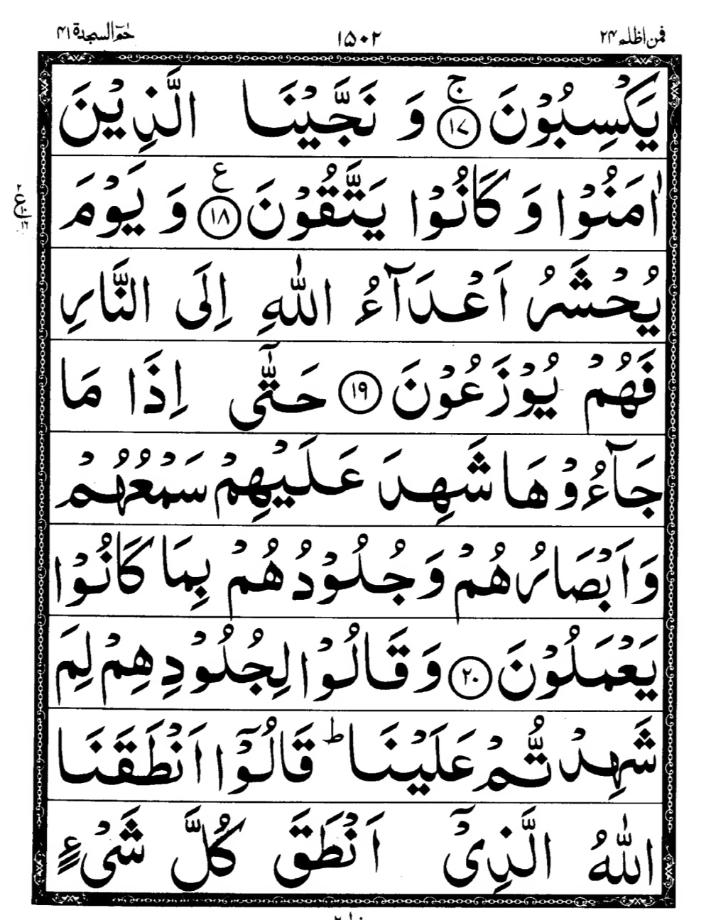 فمن اظلم ۲۴ ۱۵۰۲ حٰمٓ السجدة ۴۱
يَكْسِبُوْنَ ﴿۱۷﴾ۚ وَ نَجَّيْنَا الَّذِيْنَ
اٰمَنُوْا وَ كَانُوْا يَتَّقُوْنَ ﴿۱۸﴾ع وَ يَوْمَ
يُحْشَرُ اَعْدَآءُ اللّٰهِ اِلَى النَّارِ
فَهُمْ يُوْزَعُوْنَ ﴿۱۹﴾ حَتّٰٓى اِذَا مَا
جَآءُوْهَا شَهِدَ عَلَيْهِمْ سَمْعُهُمْ
وَ اَبْصَارُهُمْ وَ جُلُوْدُهُمْ بِمَا كَانُوْا
يَعْمَلُوْنَ ﴿۲۰﴾ وَ قَالُوْا لِجُلُوْدِهِمْ لِمَ
شَهِدْتُّمْ عَلَيْنَا ؕ قَالُوْۤا اَنْطَقَنَا
اللّٰهُ الَّذِيْۤ اَنْطَقَ كُلَّ شَيْءٍ